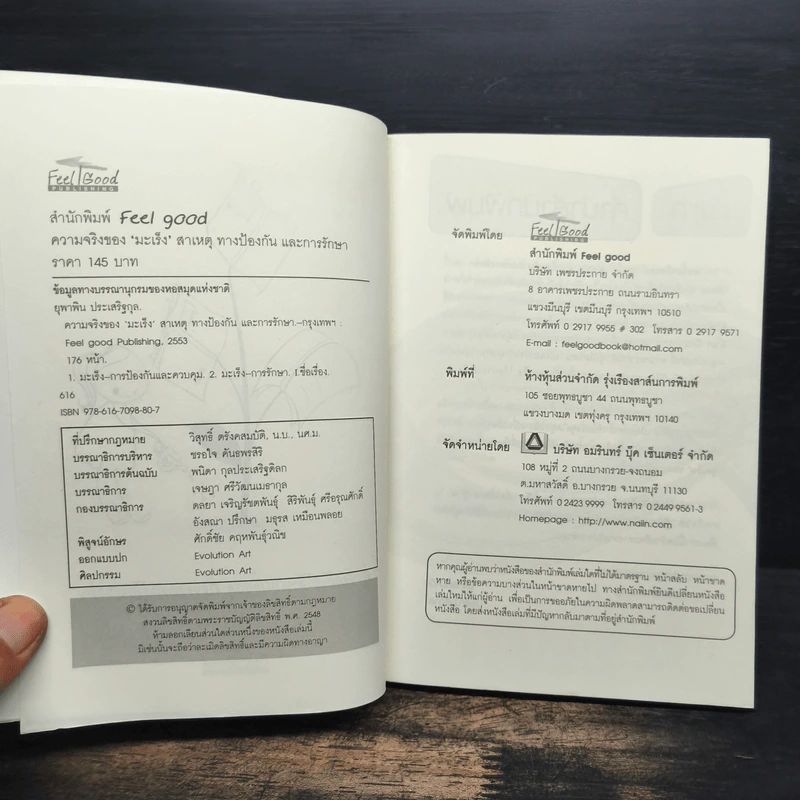 Feel Good
PUBLISHING
สำนักพิมพ์ Feel good
ความจริงของ ‘มะเร็ง’ สาเหตุ ทางป้องกัน และการรักษา
ราคา 145 บาท
ข้อมูลทางบรรณานุกรมของหอสมุดแห่งชาติ
ยุพาพิน ประเสริฐกุล.
ความจริงของ ‘มะเร็ง’ สาเหตุ ทางป้องกัน และการรักษา.–กรุงเทพฯ :
Feel good Publishing, 2553
176 หน้า.
1. มะเร็ง–การป้องกันและควบคุม. 2. มะเร็ง–การรักษา. I.ชื่อเรื่อง.
616
ISBN 978-616-7098-80-7
ที่ปรึกษากฎหมาย วิสุทธิ์ ตรังคสมบัติ, น.บ., นศ.ม.
บรรณาธิการบริหาร ชรอใจ คันธพรสิริ
บรรณาธิการต้นฉบับ พนิดา กุลประเสริฐดิลก
บรรณาธิการ เจษฎา ศรีวัฒนเมธากุล
กองบรรณาธิการ ดลยา เจริญรัชตพันธุ์ สิริพันธุ์ ศรีอรุณศักดิ์
อังสณา ปรึกษา มธุรส เหมือนพลอย
พิสูจน์อักษร ศักดิ์ชัย คฤหพันธุ์วณิช
ออกแบบปก Evolution Art
ศิลปกรรม Evolution Art
© ได้รับการอนุญาตจัดพิมพ์จากเจ้าของลิขสิทธิ์ตามกฎหมาย
สงวนลิขสิทธิ์ตามพระราชบัญญัติลิขสิทธิ์ พ.ศ. 2548
ห้ามลอกเลียนส่วนใดส่วนหนึ่งของหนังสือเล่มนี้
มิเช่นนั้นจะถือว่าละเมิดลิขสิทธิ์และมีความผิดทางอาญา
จัดพิมพ์โดย Feel Good
PUBLISHING
สำนักพิมพ์ Feel good
บริษัท เพชรประกาย จำกัด
8 อาคารเพชรประกาย ถนนรามอินทรา
แขวงมีนบุรี เขตมีนบุรี กรุงเทพฯ 10510
โทรศัพท์ 0 2917 9955 # 302 โทรสาร 0 2917 9571
E-mail : feelgoodbook@hotmail.com
พิมพ์ที่ ห้างหุ้นส่วนจำกัด รุ่งเรืองสาส์นการพิมพ์
105 ซอยพุทธบูชา 44 ถนนพุทธบูชา
แขวงบางมด เขตทุ่งครุ กรุงเทพฯ 10140
จัดจำหน่ายโดย บริษัท อมรินทร์ บุ๊ค เซ็นเตอร์ จำกัด
108 หมู่ที่ 2 ถนนบางกรวย-จงถนอม
ต.มหาสวัสดิ์ อ.บางกรวย จ.นนทบุรี 11130
โทรศัพท์ 0 2423 9999 โทรสาร 0 2449 9561-3
Homepage : http://www.naiin.com
หากคุณผู้อ่านพบว่าหนังสือของสำนักพิมพ์เล่มใดที่ไม่ได้มาตรฐาน หน้าสลับ หน้าขาด
หาย หรือข้อความบางส่วนในหน้าขาดหายไป ทางสำนักพิมพ์ยินดีเปลี่ยนหนังสือ
เล่มใหม่ให้แก่ผู้อ่าน เพื่อเป็นการขออภัยในความผิดพลาดสามารถติดต่อขอเปลี่ยน
หนังสือ โดยส่งหนังสือเล่มที่มีปัญหากลับมาตามที่อยู่สำนักพิมพ์